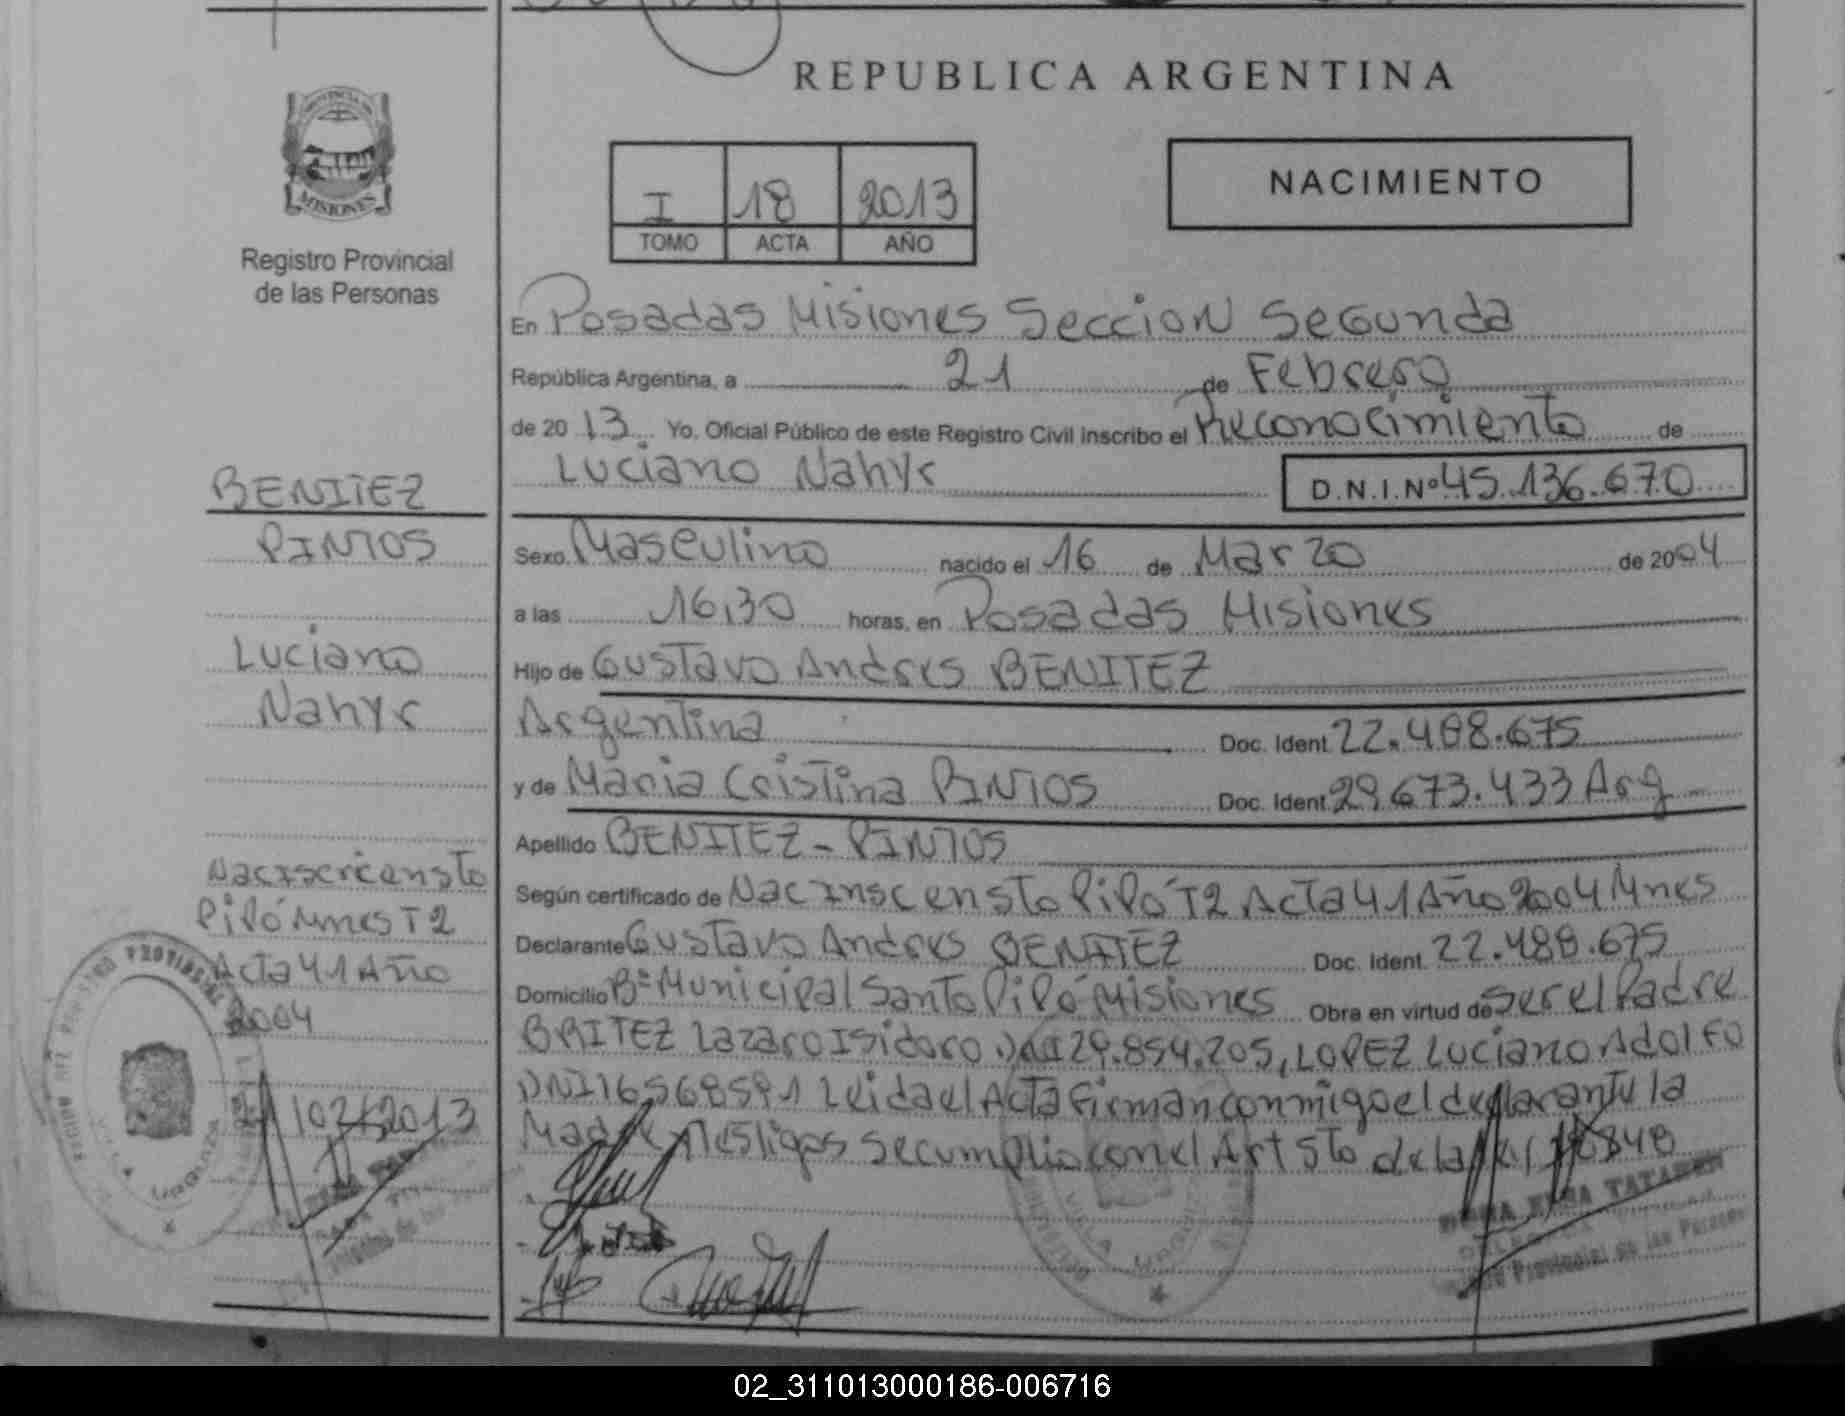 REPUBLICA ARGENTINA
PROVINCIA DE
MISIONES
Registro Provincial
de las Personas
I 18 2013
TOMO ACTA AÑO
NACIMIENTO
En Posadas Misiones Seccion Segunda
República Argentina, a 21 de Febrero
de 2013 Yo, Oficial Público de este Registro Civil inscribo el Reconocimiento de
Luciano Nahyr D.N.I.Nº 45.136.670
BENITEZ
PINTOS
Luciano
Nahyr
Sexo. Masculino nacido el 16 de Marzo de 2004
a las 16,30 horas, en Posadas Misiones
Hijo de Gustavo Andres BENITEZ
Argentina Doc. Ident. 22.488.675
y de Maria Cristina PINTOS Doc. Ident. 29.673.433 Arg
Apellido BENITEZ - PINTOS
Según certificado de Nac Insc en Sto Pipó T2 Acta 41 Año 2004 Mnes
Declarante Gustavo Andres BENITEZ Doc. Ident. 22.488.675
Domicilio Bº Municipal Santo Pipó Misiones Obra en virtud de ser el Padre
BRITEZ Lazaro Isidoro DNI 29.854.205, LOPEZ Luciano Adolfo
DNI 16568591 Leida el Acta firman conmigo el declarante la
Madre y testigos se cumplio con el Art 5to de la 18848
Nac en Sto
Pipó Mnes T2
Acta 41 Año
2004
02 2013
VILLA URQUIZA
VILLA URQUIZA
TATAREN
Provincial de las Personas
02_311013000186-006716